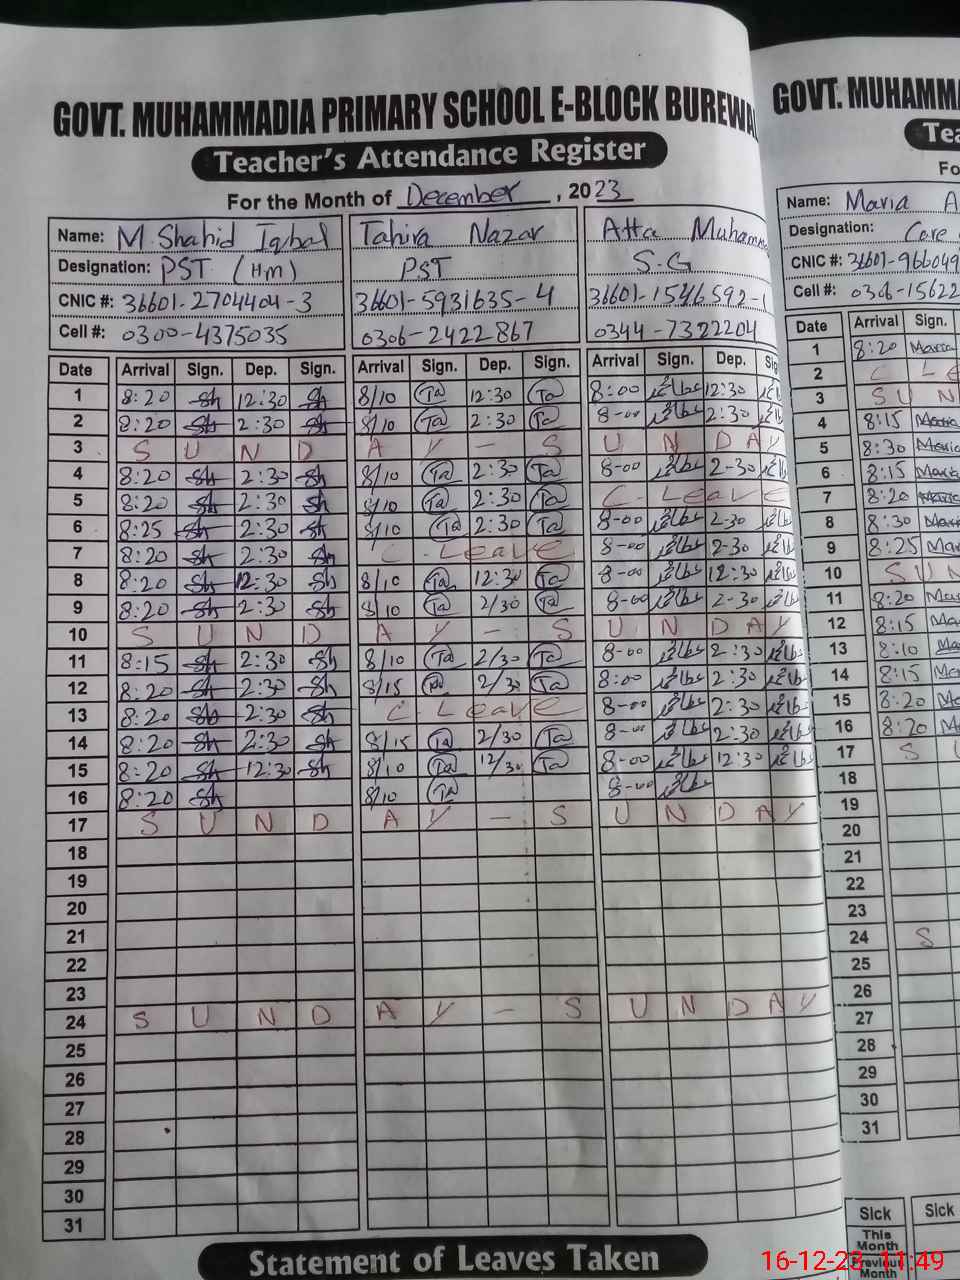 GOVT. MUHAMMADIA PRIMARY SCHOOL E-BLOCK BUREWA
Teacher's Attendance Register
For the Month of December, 2023
Name: M. Shahid Iqbal Tahira Nazar Atta Muhamm
Designation: PST (HM) PST S.G
CNIC #: 36601-2704404-3 36601-5931635-4 36601-1546592-1
Cell #: 0300-4375035 0306-2422867 0344-7322204
Date Arrival Sign. Dep. Sign. Arrival Sign. Dep. Sign. Arrival Sign. Dep. Sig
1 8:20 Sh 12:30 Sh 8/10 Ta 12:30 Ta 8:00 12:30
2 8:20 Sh 2:30 Sh 8/10 Ta 2:30 Ta 8-00 2:30
3 S U N D A Y - S U N D A Y
4 8:20 Sh 2:30 Sh 8/10 Ta 2:30 Ta 8-00 2-30
5 8:20 Sh 2:30 Sh 8/10 Ta 2:30 Ta C. Leave
6 8:25 Sh 2:30 Sh 8/10 Ta 2:30 Ta 8-00 2-30
7 8:20 Sh 2:30 Sh C. Leave 8-00 2-30
8 8:20 Sh 12:30 Sh 8/10 Ta 12:30 Ta 8-00 12:30
9 8:20 Sh 2:30 Sh 8/10 Ta 2/30 Ta 8-00 2-30
10 S U N D A Y - S U N D A Y
11 8:15 Sh 2:30 Sh 8/10 Ta 2/30 Ta 8-00 2:30
12 8:20 Sh 2:30 Sh 8/15 Ta 2/30 Ta 8:00 2:30
13 8:20 Sh 2:30 Sh C. Leave 8-00 2:30
14 8:20 Sh 2:30 Sh 8/15 Ta 2/30 Ta 8-00 2:30
15 8:20 Sh 12:30 Sh 8/10 Ta 12/30 Ta 8-00 12:30
16 8:20 Sh 8/10 Ta 8-00
17 S U N D A Y - S U N D A Y
18
19
20
21
22
23
24 S U N D A Y - S U N D A Y
25
26
27
28
29
30
31
Statement of Leaves Taken
GOVT. MUHAMMA
Tea
Fo
Name: Maria A
Designation: Care
CNIC #: 36601-966049
Cell #: 0306-15622
Date Arrival Sign.
1 8:20 Maria
2 C Le
3 S U N
4 8:15 Maria
5 8:30 Maria
6 8:15 Maria
7 8:20 Maria
8 8:30 Maria
9 8:25 Mar
10 S U N
11 8:20 Mar
12 8:15 Mar
13 8:10 Ma
14 8:15 Mar
15 8:20 Ma
16 8:20 Ma
17 S U
18
19
20
21
22
23
24 S
25
26
27
28
29
30
31
Sick Sick
This Month
Previous Month
16-12-23 11:49